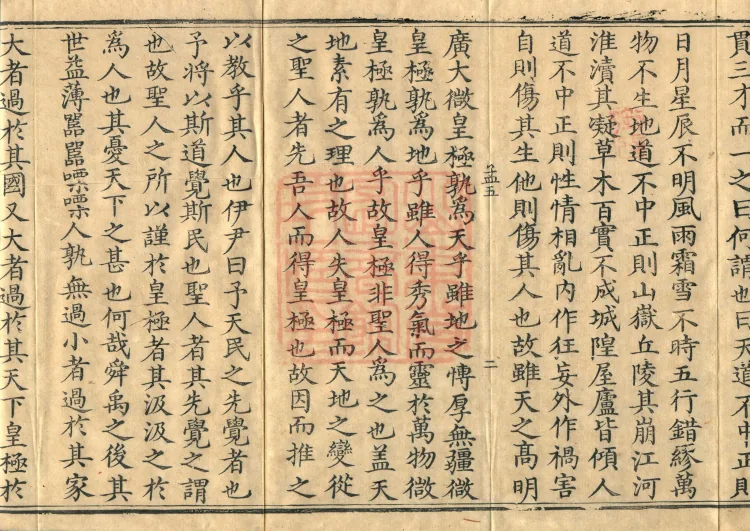 貫三才而一之曰何謂也曰天道不中正則
日月星辰不明風雨霜雪不時五行錯繆萬
物不生地道不中正則山嶽丘陵其崩江河
淮瀆其凝草木百實不成城隍屋廬皆傾人
道不中正則性情相亂內作狂妄外作禍害
自則傷其生他則傷其人也故雖天之高明
孟五
二
廣大微皇極孰為天乎雖地之博厚無疆微
皇極孰為地乎雖人得秀氣而靈於萬物微
皇極孰為人乎故皇極非聖人為之也盖天
地素有之理也故人失皇極而天地之變從
之聖人者先吾人而得皇極也故因而推之
以教乎其人也伊尹曰予天民之先覺者也
予將以斯道覺斯民也聖人者其先覺之謂
也故聖人之所以謹於皇極者其汲汲之於
為人也其憂天下之甚也何哉舜禹之後其
世益薄嚚嚚嘌嘌人孰無過小者過於其家
大者過於其國又大者過於其天下皇極於